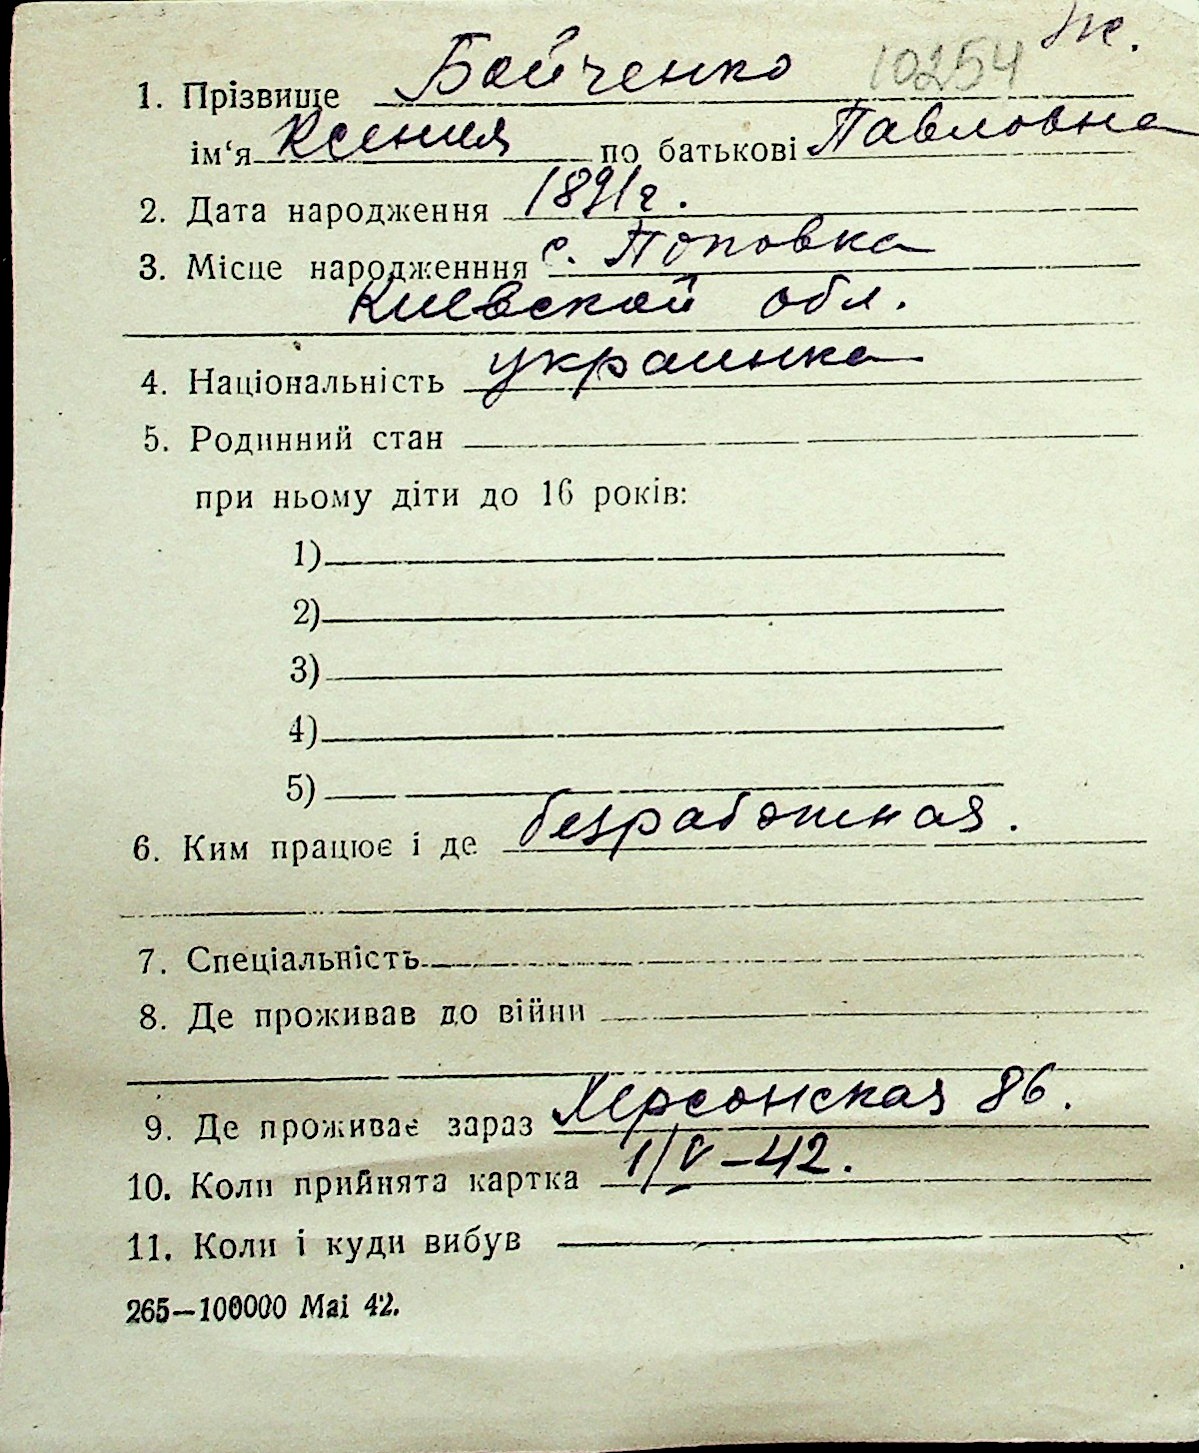 10254 Ж.
1. Прізвище Бойченко
ім‘я Ксения по батькові Павловна
2. Дата народження 1891г.
3. Місце народженння с. Поповка
Киевской обл.
4. Національність украинка
5. Родинний стан
при ньому діти до 16 років:
1)
2)
3)
4)
5)
6. Ким працює і де безработная.
7. Спеціальність
8. Де проживав до війни
9. Де проживає зараз Херсонская 86.
10. Коли прийнята картка 1/V–42.
11. Коли і куди вибув
265—100000 Mai 42.